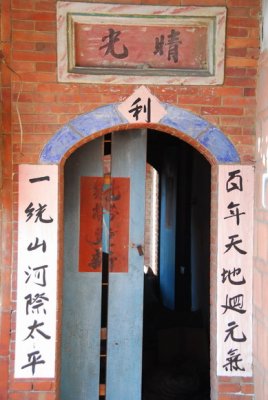 晴光
利
百年天地迴元氣
一統山河際太平